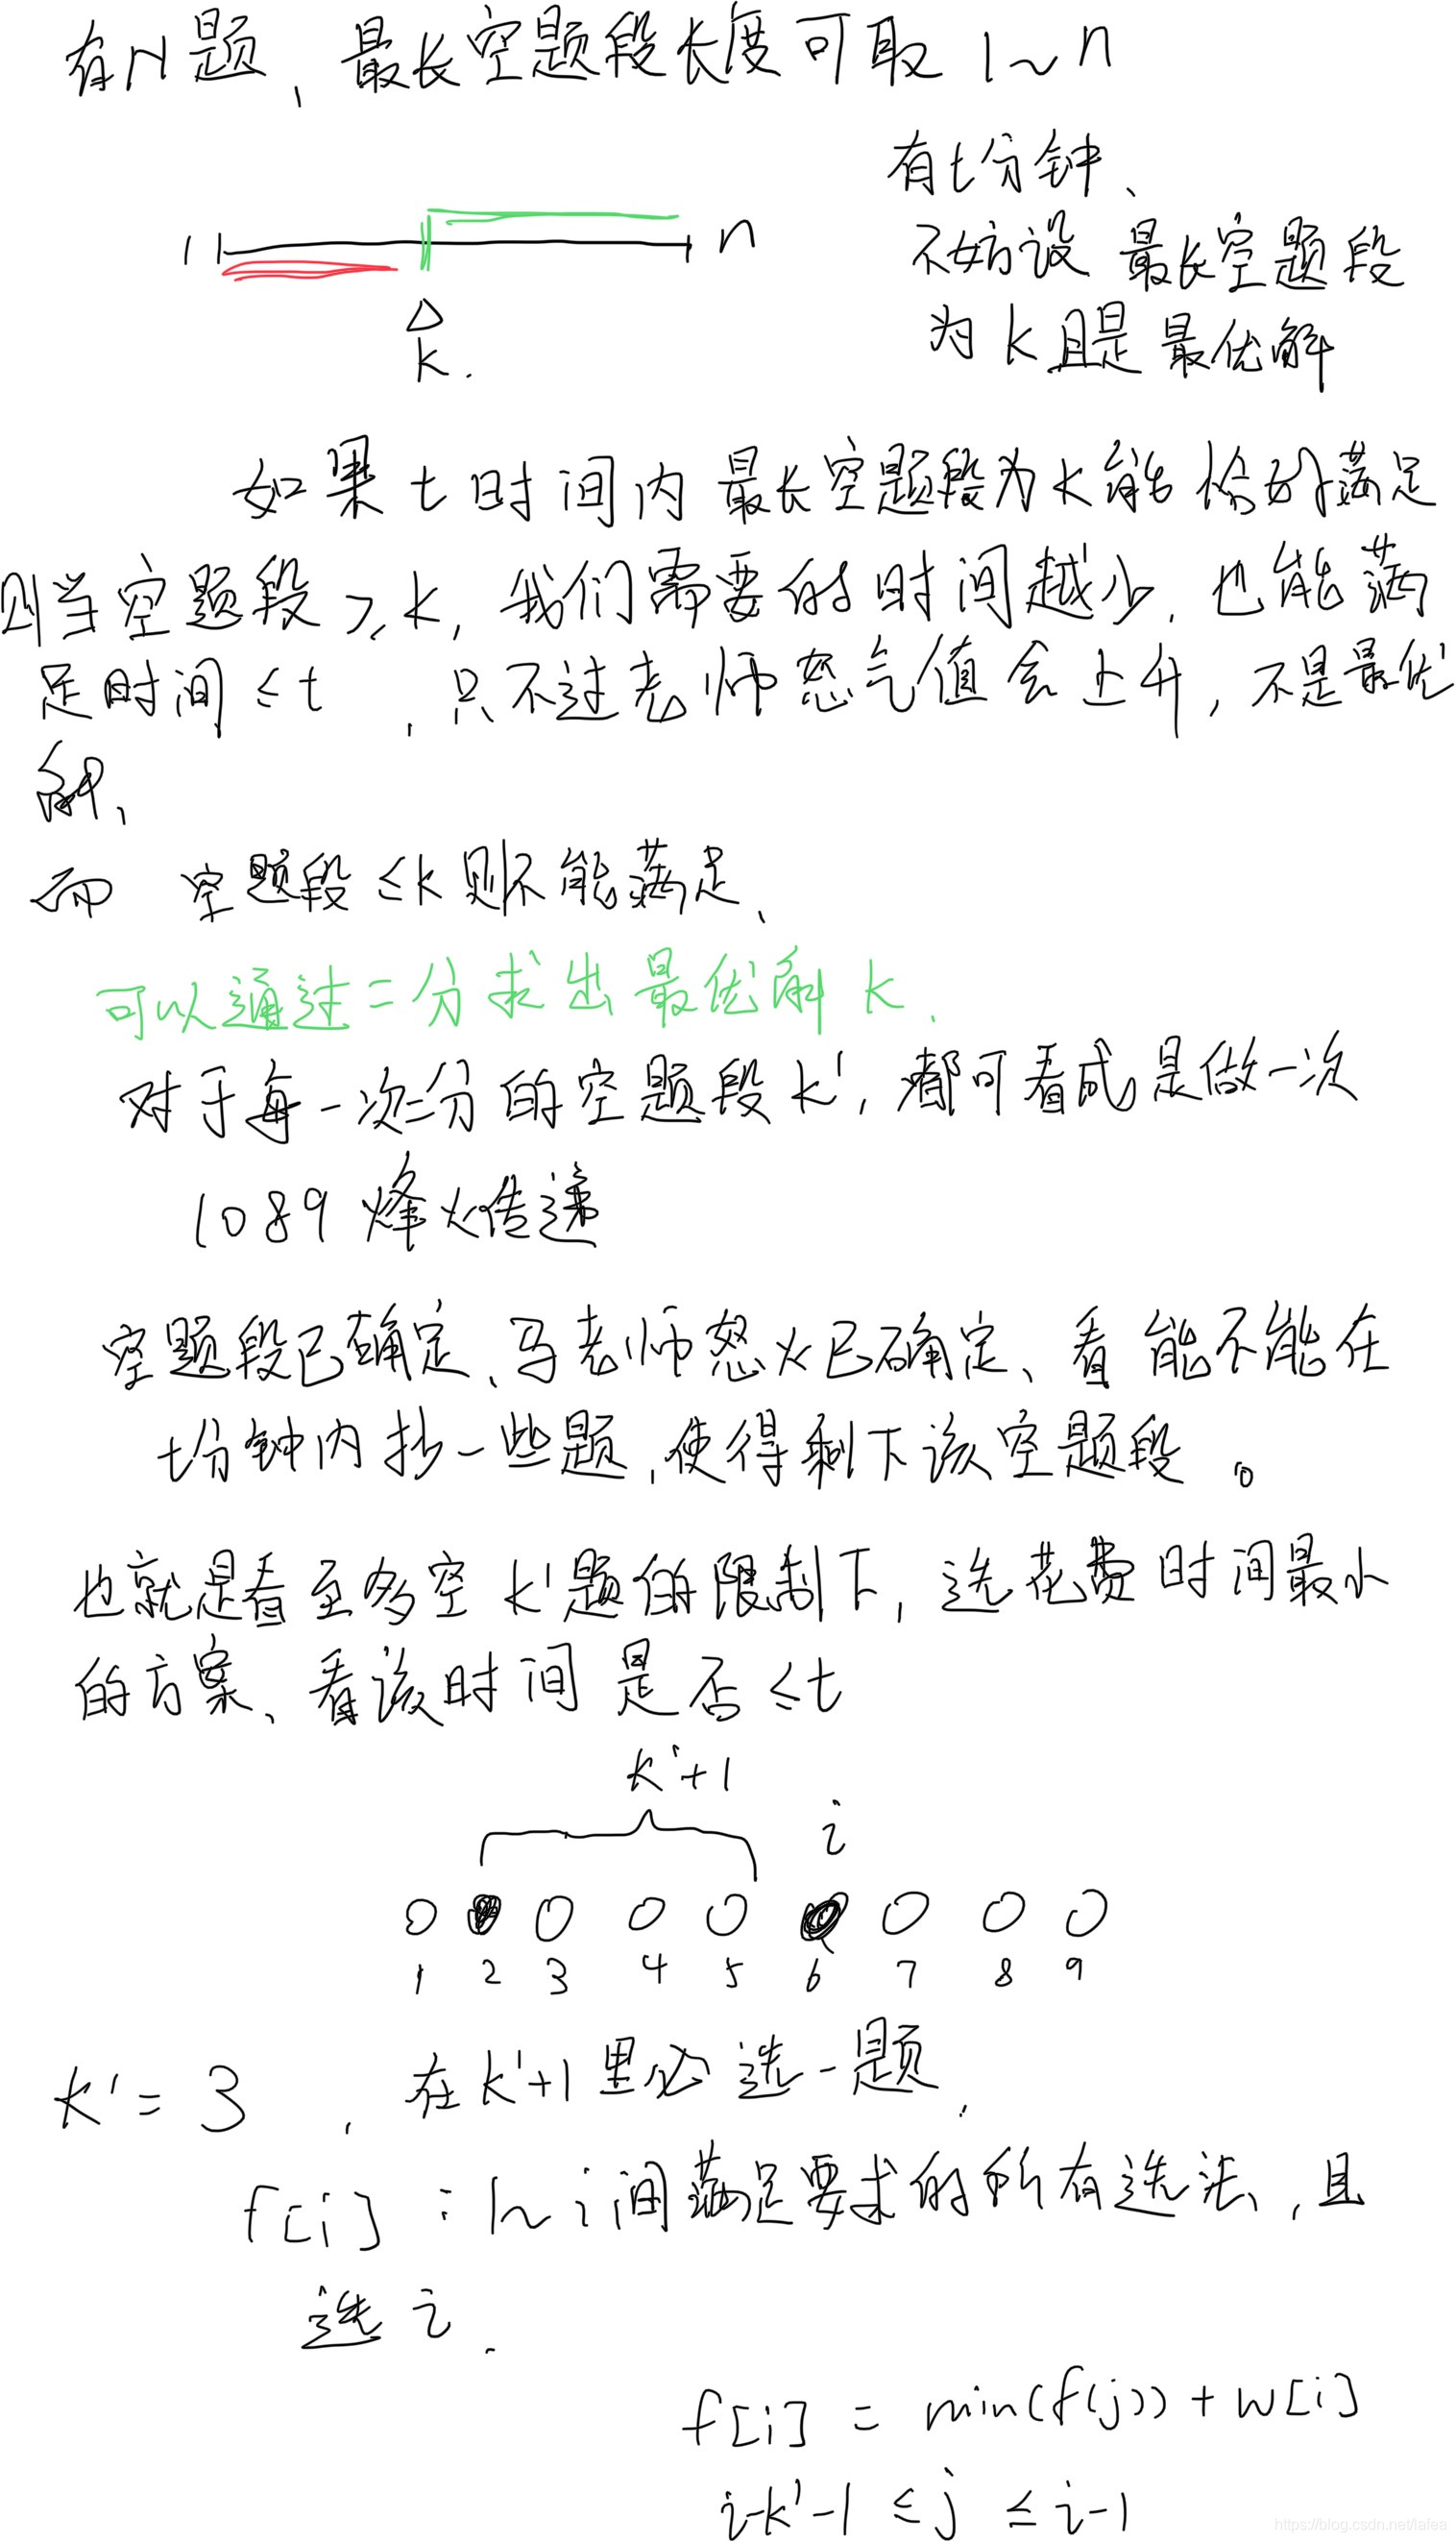 有N题、最长空题段长度可取 1~n
有t分钟、
不妨设 最长空题段
为k且是最优解
1 n
k.
如果t时间内最长空题段为k能恰好满足
则当空题段≥k,我们需要的时间越少.也能满
足时间≤t,只不过老师怒气值会上升,不是最优
解、
而 空题段≤k则不能满足、
可以通过二分求出最优解k.
对于每一次二分的空题段k',都可看成是做一次
1089烽火传递
空题段已确定、马老师怒火已确定、看能不能在
t分钟内抄一些题,使得剩下该空题段。
也就是看至多空k'题的限制下,选花费时间最小
的方案、看该时间是否≤t
k'+1
i
1 2 3 4 5 6 7 8 9
k'=3 ,在k'+1里必选一题,
f[i]:1~i间满足要求的所有选法,且
选i.
f[i] = min(f(j)) + w[i]
i-k'-1 ≤ j ≤ i-1
https://blog.csdn.net/lafea